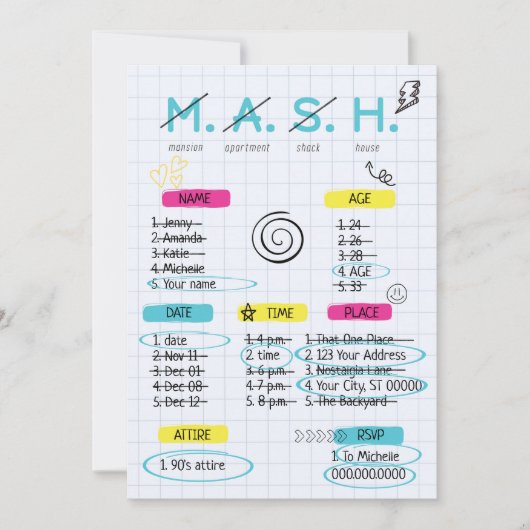 M. A. S. H.
mansion apartment shack house
NAME
1. Jenny
2. Amanda
3. Katie
4. Michelle
5. Your name
AGE
1. 24
2. 26
3. 28
4. AGE
5. 33
DATE
1. date
2. Nov 11
3. Dec 01
4. Dec 08
5. Dec 12
TIME
1. 4 p.m.
2. time
3. 6 p.m.
4. 7 p.m.
5. 8 p.m.
PLACE
1. That One Place
2. 123 Your Address
3. Nostalgia Lane
4. Your City, ST 00000
5. The Backyard
ATTIRE
1. 90's attire
RSVP
1. To Michelle
000.000.0000